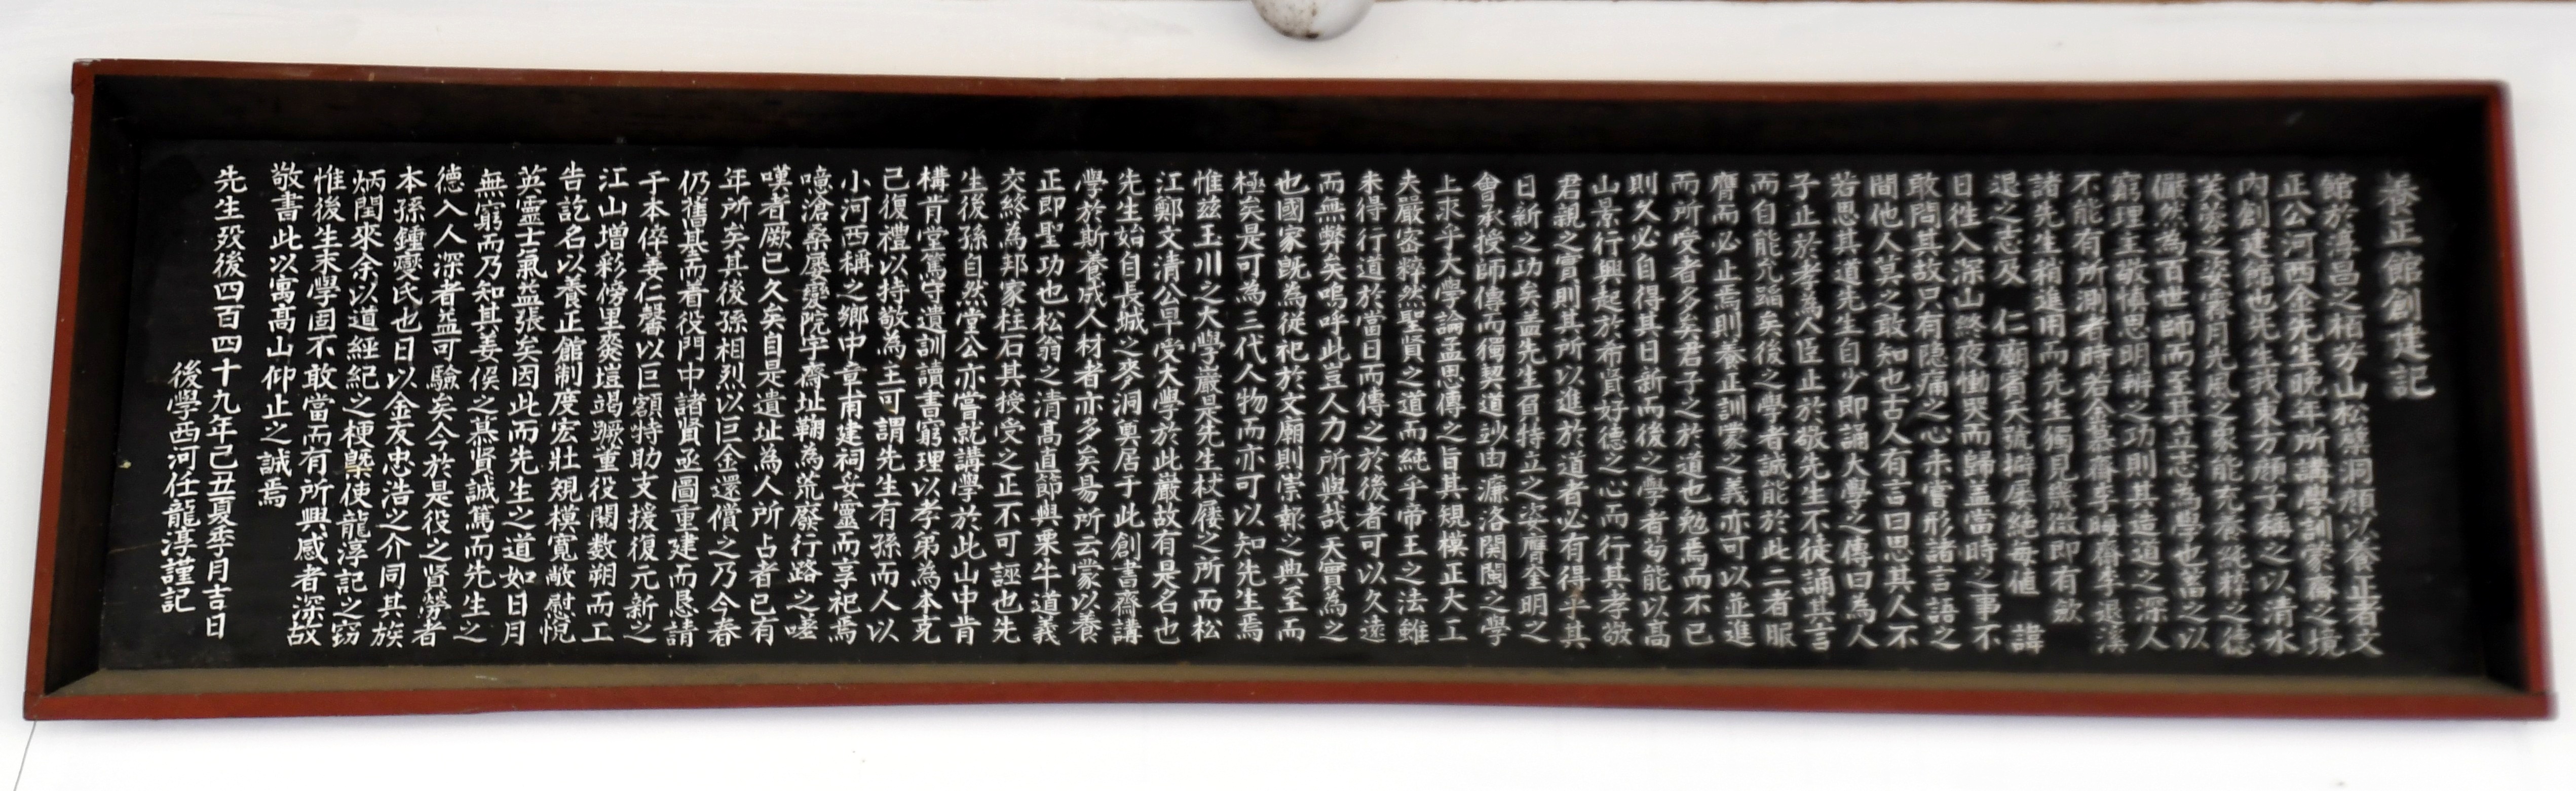 養正館創建記
館於淳昌之栢芳山松檗洞顔以養正者文
正公河西金先生晩年所講學訓蒙齋之境
內創建館也先生我東方顔子稱之以清水
芙蓉之姿霽月光風之象能充養純粹之德
儼然為百世師而至其立志為學也嘗之以
窮理主敬愼思明辨之功則其造道之深人
不能有所測者時若金慕齋李晦齋李退溪
諸先生稍進用而先生獨見幾微即有歛
退之志及 仁廟賓天號擗屢絶每値 諱
日徃入深山終夜慟哭而歸盖當時之事不
敢問其故只有隐痛之心未嘗形諸言語之
間他人莫之敢知也古人有言曰思其人不
若思其道先生自少即誦大學之傳曰為人
子止於孝為人臣止於敬先生不徒誦其言
而自能允蹈矣後之學者誠能於此二者服
膺而必止焉則養正訓蒙之義亦可以並進
而所受者多矣君子之於道也勉焉而不已
則久必自得其日新而後之學者苟能以高
山景行興起於希賢好德之心而行其孝敬
君親之實則其所以進於道者必有得乎其
日新之功矣盖先生負特立之姿膺金明之
會承授師傳而獨契道妙由濂洛關閩之學
上求乎大學論孟思傳之旨其規模正大工
夫嚴密粹然聖賢之道而純乎帝王之法雖
未得行道於當日而傳之於後者可以久遠
而無弊矣嗚呼此豈人力所與哉天實為之
也國家旣為從祀於文廟則崇報之典至而
極矣是可為三代人物而亦可以知先生焉
惟玆玉川之大學巖是先生杖屨之所而松
江鄭文清公早受大學於此巖故有是名也
先生始自長城之麥洞奠居于此創書齋講
學於斯養成人材者亦多矣易所云蒙以養
正即聖功也松翁之清高直節與栗牛道義
交終為邦家柱石其授受之正不可誣也先
生後孫自然堂公亦嘗就講學於此山中肯
構肯堂篤守遺訓讀書窮理以孝弟為本克
己復禮以持敬為主可謂先生有孫而人以
小河西稱之鄉中章甫建祠妥靈而享祀焉
噫滄桑屢變院宇齋址鞠為荒廢行路之嗟
嘆者厥已久矣自是遺址為人所占者已有
年所矣其後孫相烈以巨金還償之乃今春
仍舊基而着役門中諸賢亟圖重建而恳請
于本倅姜仁馨以巨額特助支援復元新之
江山增彩傍里奐塏竭蹶董役閱數朔而工
告訖名以養正館制度宏壯規模寬敞慰悅
英靈士氣益張矣因此而先生之道如日月
無窮而乃知其姜侯之慕賢誠篤而先生之
德入人深者益可驗矣今於是役之賢勞者
本孫鍾燮氏也日以金友忠浩之介同其族
炳閏來余以道經紀之梗槩使龍淳記之窃
惟後生末學固不敢當而有所興感者深故
敬書此以寓高山仰止之誠焉
先生歿後四百四十九年己丑夏季月吉日
後學西河任龍淳謹記